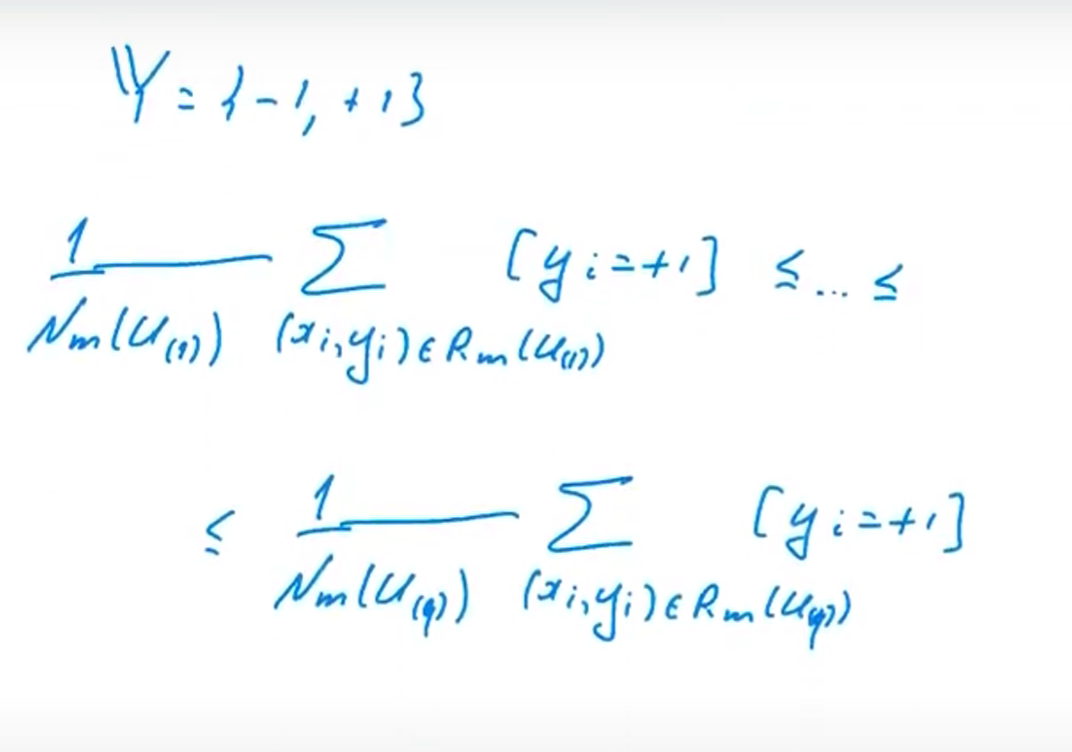 𝕐 = {-1, +1}
1/Nₘ(u₍₁₎) ∑_{(xᵢ,yᵢ)∈Rₘ(u₍₁₎)} [yᵢ=+1] ≤ ... ≤
≤ 1/Nₘ(u₍q₎) ∑_{(xᵢ,yᵢ)∈Rₘ(u₍q₎)} [yᵢ=+1]